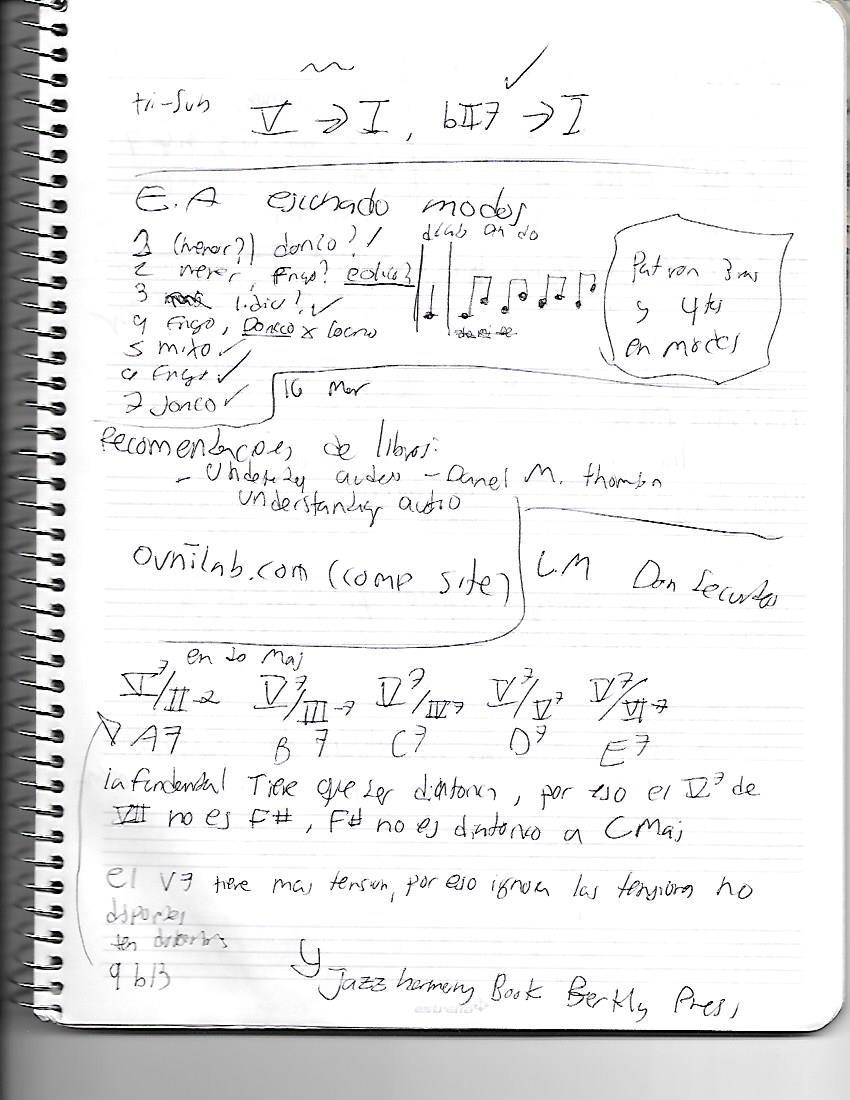 tri-sub V → I, bII7 → I
E.A escuchado modos
1 (menor?) dorico? /
2 menor, Frigo? eolico?
3 lidio? ✓
4 Frigo, Dorico x locrio
5 mixo ✓
6 Frigo ✓
7 Dorico ✓
Patron 3ras
y 4tas
en modos
16 Mar
Recomendaciones de libros:
- audio - Daniel M. Thompson
Understanding audio
ovnilab.com (comp site)
L.M Dom Secundarios
en Do Maj
V7/II-7 V7/III-7 V7/IV7 V7/V7 V7/VI-7
A7 B7 C7 D7 E7
la fundamental Tiene que ser diatonica, por eso el V7 de
VII no es F#, F# no es diatonico a CMaj
el V7 tiene mas tension, por eso ignora las tensiones no
disponibles
ten diatonicas
9 b13
Jazz harmony Book Berkly Press